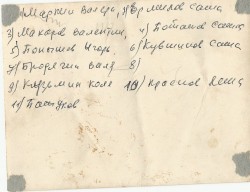 1) Маркин Валера, 2) Ермилов Саша
3) Макаров Валентин, 4) Потапов Саша
5) Понышев Игорь, 6) Кувшинов Саша
7) Бродягин Валя 8)
9) Кузьмин Коля 10) Краснов Леша
11) Пастухов